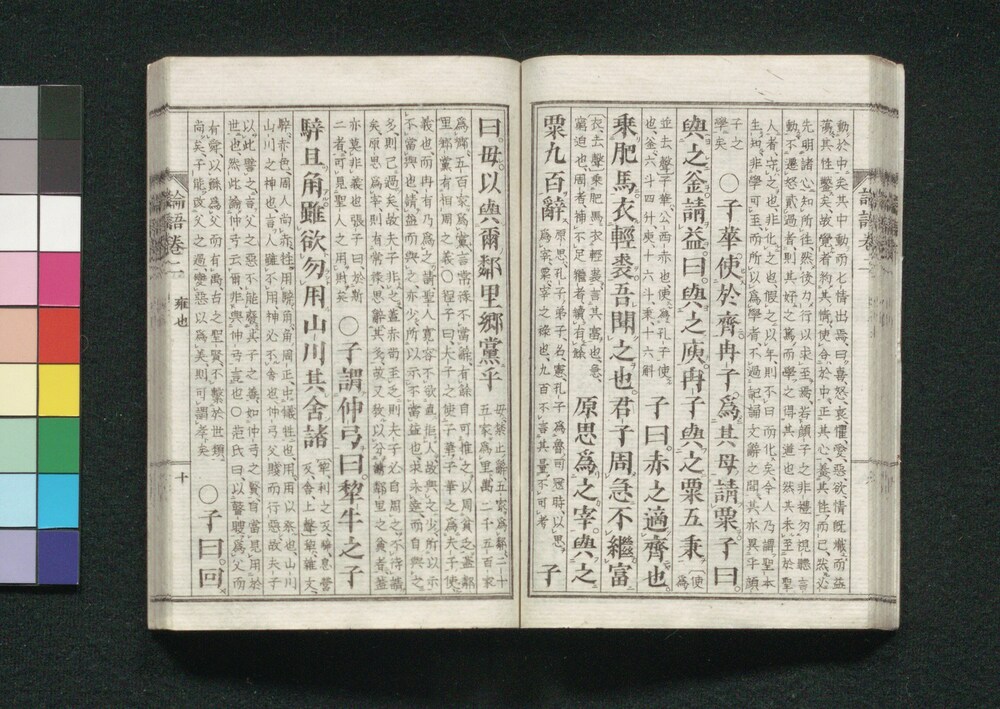 論語卷一
動於中矣、其中動而七情出焉、曰喜怒哀懼愛惡欲、情既熾而益
蕩其性鑿矣、故覺者約其情使合於中、正其心、養其性而已、然必
先明諸心、知所往、然後力行以求至焉、若顏子之非禮勿視聽言
動、不遷怒貳過者、則其好之篤而學之得其道也、然其未至於聖
人者、守之也、非化之也、假之以年、則不日而化矣、今人乃謂聖本
生知、非學可至、而所以爲學者、不過記誦文辭之間、其亦異乎顏
子之
學矣
○子華使於齊。冉子爲其母請粟。子曰。
與之釜。請益。曰。與之庾。冉子與之粟五秉。
使
爲
並去聲○子華公西赤也、使、爲孔子使
也、釜、六斗四升、庾、十六斗、秉、十六斛
子曰。赤之適齊也。
乘肥馬。衣輕裘。吾聞之也。君子周急不繼富。
衣去聲○乘肥馬、衣輕裘、言其富也、急、
窮迫也、周者、補不足、繼者、續有餘
原思爲之宰。與之
粟九百。辭。
原思、孔子弟子、名憲、孔子爲魯司寇時、以思
爲宰、粟、宰之祿也、九百不言其量、不可考
子
曰。毋。以與爾鄰里鄉黨乎
毋、禁止辭、五家爲鄰、二十
五家爲里、萬二千五百家
爲鄉、五百家爲黨、言常祿不當辭、有餘自可推之以周貧乏、蓋鄰
里鄉黨有相周之義○程子曰、夫子之使子華、子華之爲夫子使、
義也、而冉有乃爲之請、聖人寬容、不欲直拒人、故與之少、所以示
不當與也、請益而與之亦少、所以示不當益也、求未達而自與之
多、則已過矣、故夫子非之、蓋赤苟至乏、則夫子必自周之、不待請
矣、原思爲宰、則有常祿、思辭其多、故又敎以分諸鄰里之貧者、蓋
亦莫非義也、張子曰、於斯
二者、可見聖人之用財矣
○子謂仲弓曰。犂牛之子
騂且角。雖欲勿用。山川其舍諸
犂利之反、騂息營
反、舍上聲○犂、雜文、
騂、赤色、周人尚赤、牲用騂、角、角周正、中犧牲也、用、用以祭也、山川、
山川之神也、言人雖不用、神必不舍也、仲弓父賤而行惡、故夫子
以此譬之、言父之惡、不能廢其子之善、如仲弓之賢、自當見用於
世也、然此論仲弓云爾、非與仲弓言也○范氏曰、以瞽瞍爲父而
有舜、以鯀爲父而有禹、古之聖賢、不繫於世類、
尚矣、子能改父之過、變惡以爲美、則可謂孝矣
○子曰。回
論語卷一
雍也
十